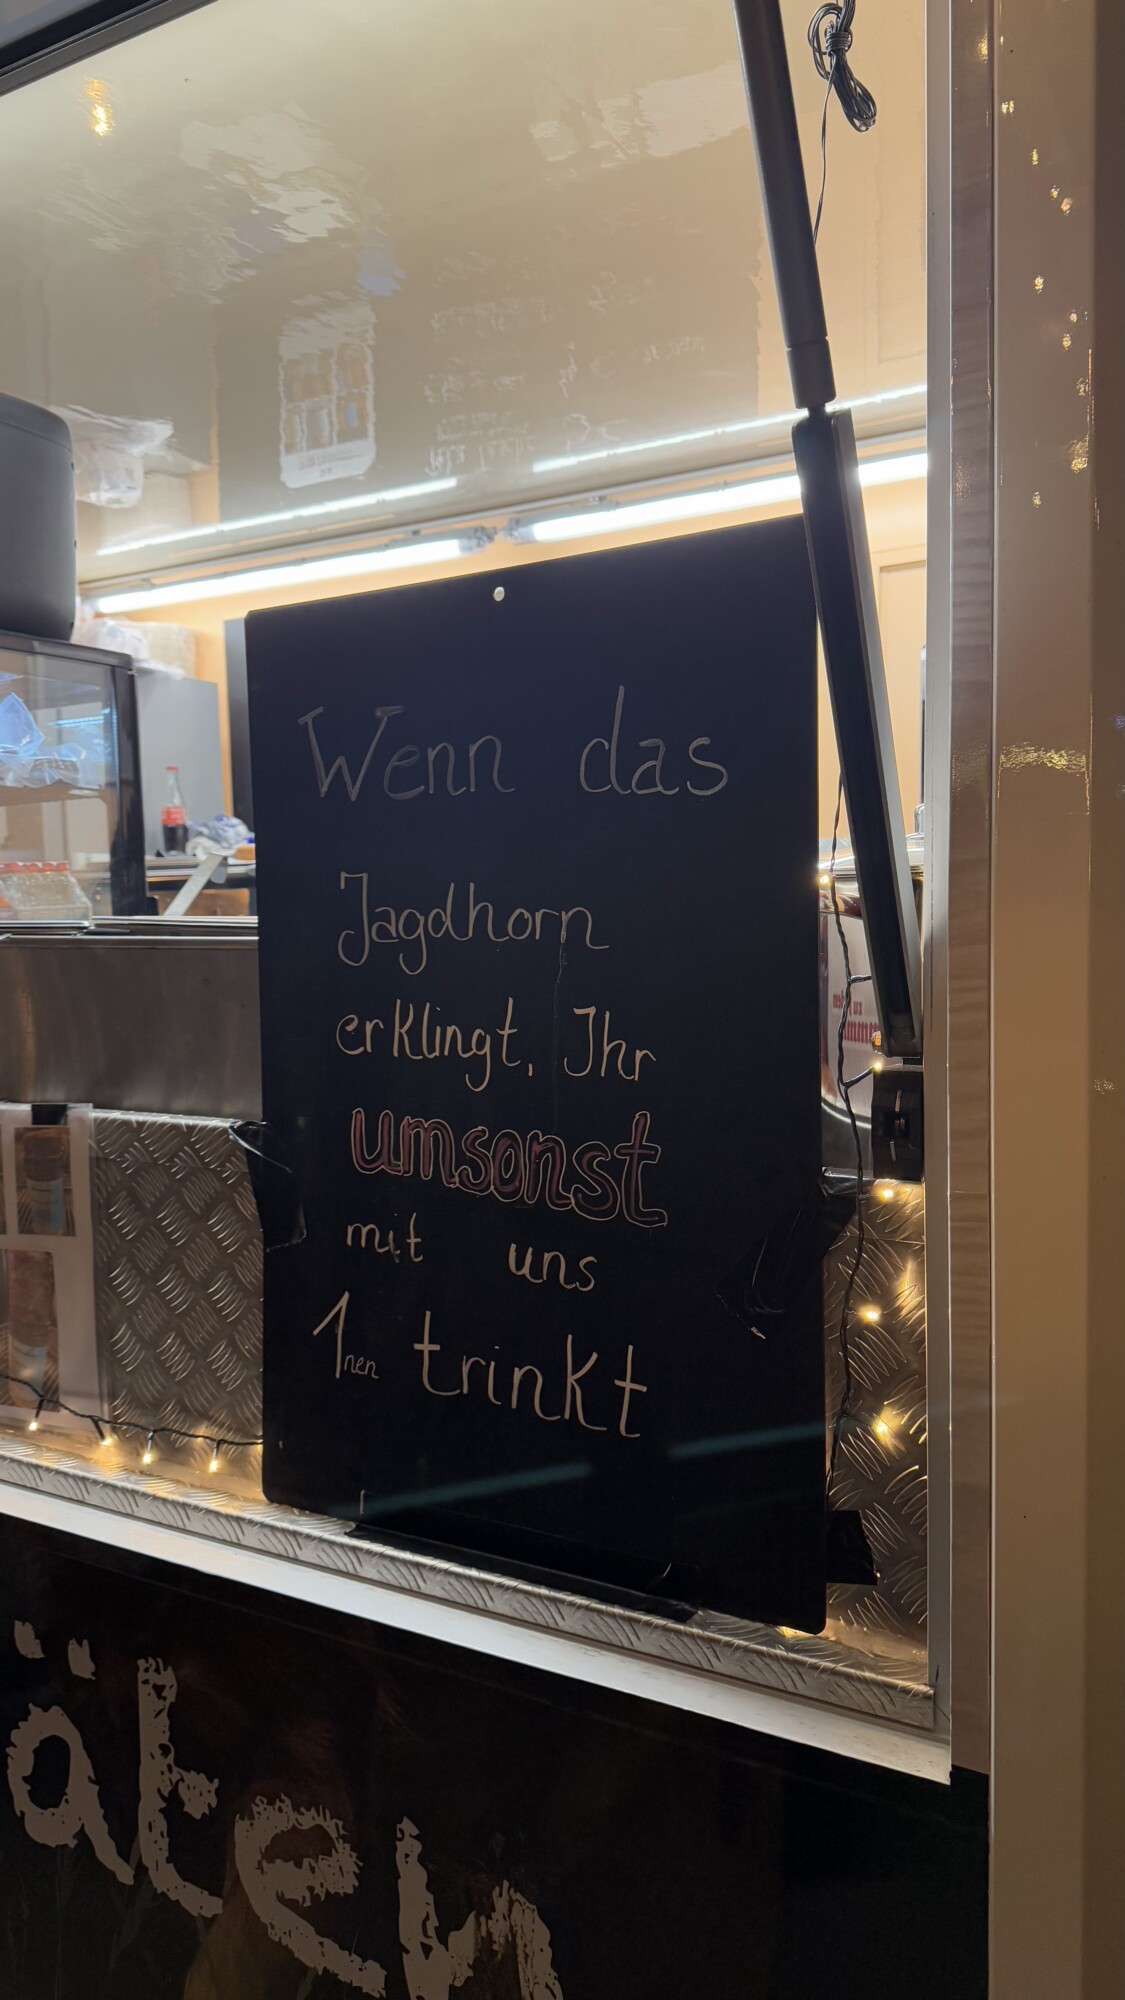 Wenn das
Jagdhorn
erklingt, Ihr
umsonst
mit uns
1nen trinkt
äten